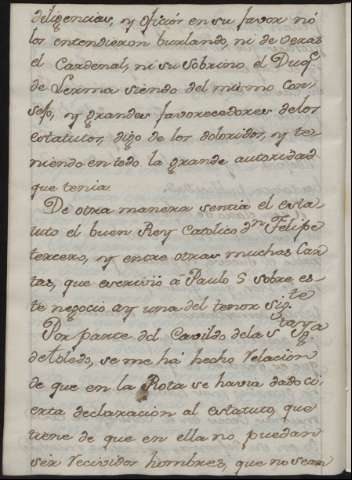 diligencias, y oficios en su favor no
los entendieron burlando, ni de veras
el Cardenal, ni su sobrino el Duqᵉ
de Lerma siendo del mismo con-
sejo, y grandes favorecedores de los
estatutos, digo de los doloridos, y te-
niendo en todo la grande autoridad
que tenia
De otra manera sentia el esta-
tuto el buen Rey Catolico Dⁿ Felipe
tercero, y entre otras muchas Car-
tas, que escrivió á Paulo 5 sobre es-
te negocio ay una del tenor sigᵗᵉ
Por parte del Cavildo de la Sᵗᵃ Ygᵃ
de Toledo, se me há hecho relacion
de que en la Rota se havia dado ci-
erta declaración al estatuto, que
tiene de que en ella no puedan
ser recividos hombres, que no sean